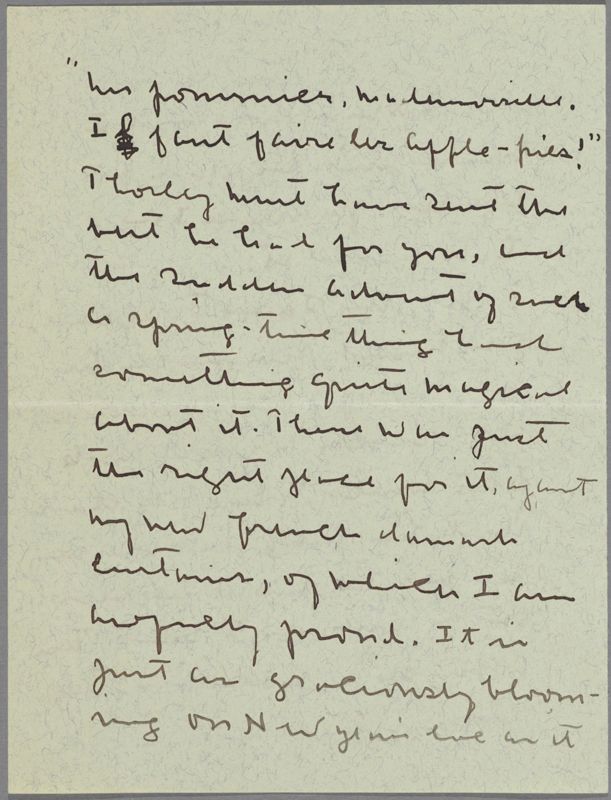 "les pommiers, mademoiselle.
I faut faire les apple-pies!"
Thorley must have sent the
best he had for you, and
the sudden advent of such
a spring-time thing had
something quite magical
about it. There was just
the right place for it, against
my new French damask
curtains, of which I am
hopelessly proud. It is
just as graciously bloom-
ing on New Years Eve as it